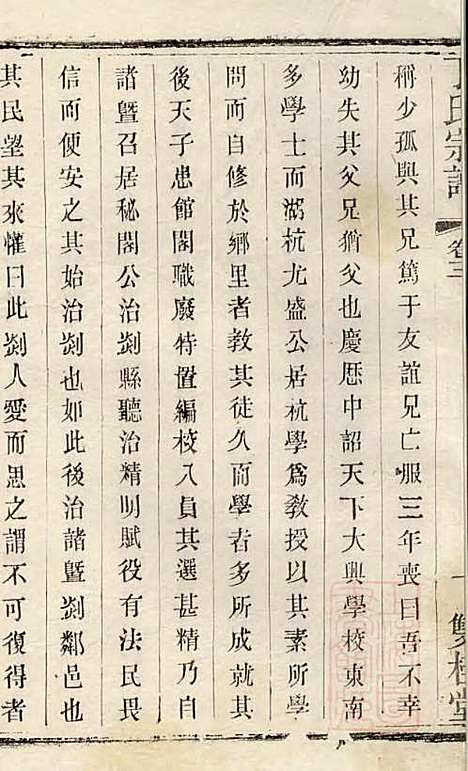 丁氏宗譜
卷三
一
雙桂堂
稱少孤與其兄篤于友誼兄亡服三年喪曰吾不幸
幼失其父兄猶父也慶厯中詔天下大興學校東南
多學士而湖杭尤盛公居杭學為敎授以其素所學
問而自修於鄉里者敎其徒久而學者多所成就其
後天子患館閣職廢特置編校八員其選甚精乃自
諸暨召居秘閣公治剡縣聽治精明賦役有法民畏
信而便安之其始治剡也如此後治諸暨剡鄰邑也
其民望其來懽曰此剡人愛而思之謂不可復得者